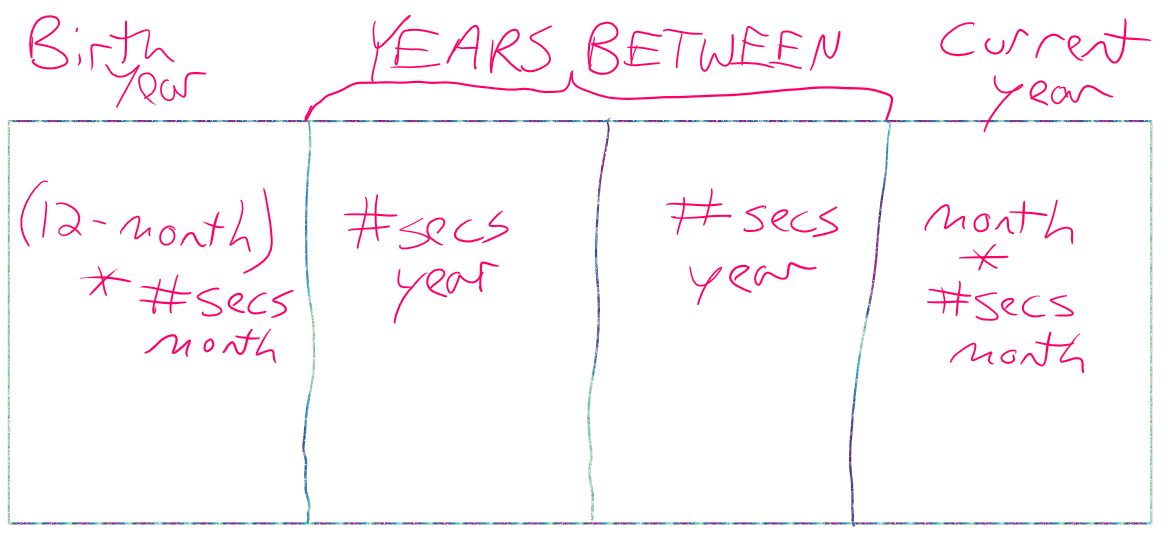 Birth
year
YEARS BETWEEN
Current
year
(12-month)
* #secs
month
#secs
year
#secs
year
month
*
#secs
month